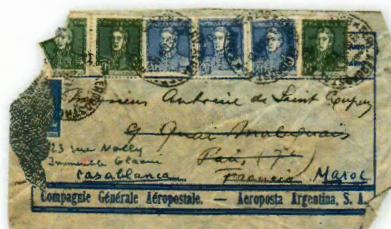 Monsieur Antoine de Saint Exupéry
9 Quai Malaquais
Paris (7e
23 rue Nolly
Immeuble Glaoui
Casablanca
Francia Maroc
Compagnie Générale Aéropostale. — Aeroposta Argentina, S. A.